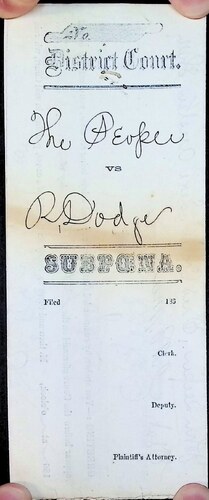 No.
District Court.
The People
vs
R. Dodge
SUBPŒNA.
Filed 185
Clerk.
Deputy.
Plaintiff's Attorney.